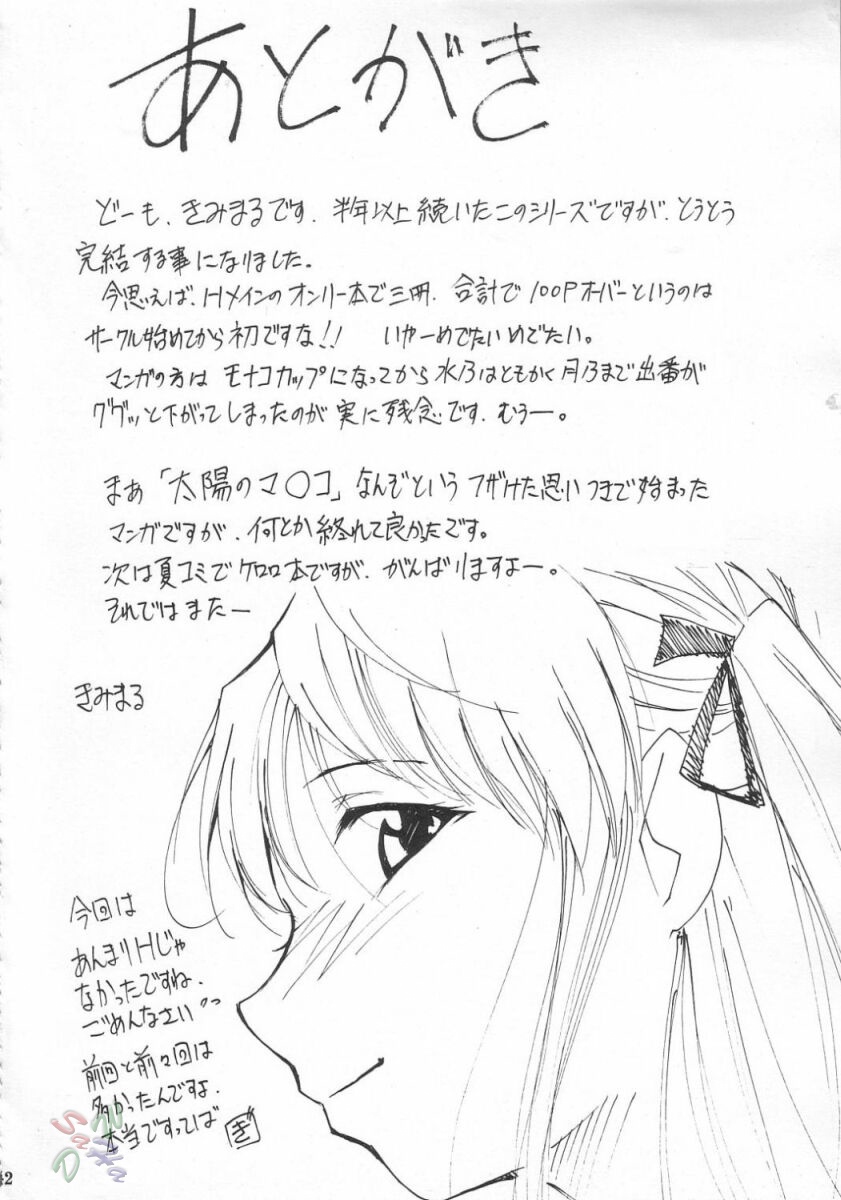 あとがき
どーも、きみまるです、半年以上続いたこのシリーズですが、とうとう
完結する事になりました。
今思えば、Hメインのオンリー本で三冊、合計で100Pオーバーというのは
サークル始めてから初ですな!! いやーめでたいめでたい。
マンガの方はモナコカップになってから水乃はともかく月乃まで出番が
ググッと下がってしまったのが実に残念です、むうー。
まぁ「太陽のマ○コ」なんぞというフザけた思いつきで始まった
マンガですが、何とか終れて良かったです。
次は夏コミでケロロ本ですが、がんばりますよー。
それではまたー
きみまる
今回は
あんまりHじゃ
なかったですね、
ごめんなさい
前回と前々回は
多かったんですよ、
本当ですってば
ぎ
42